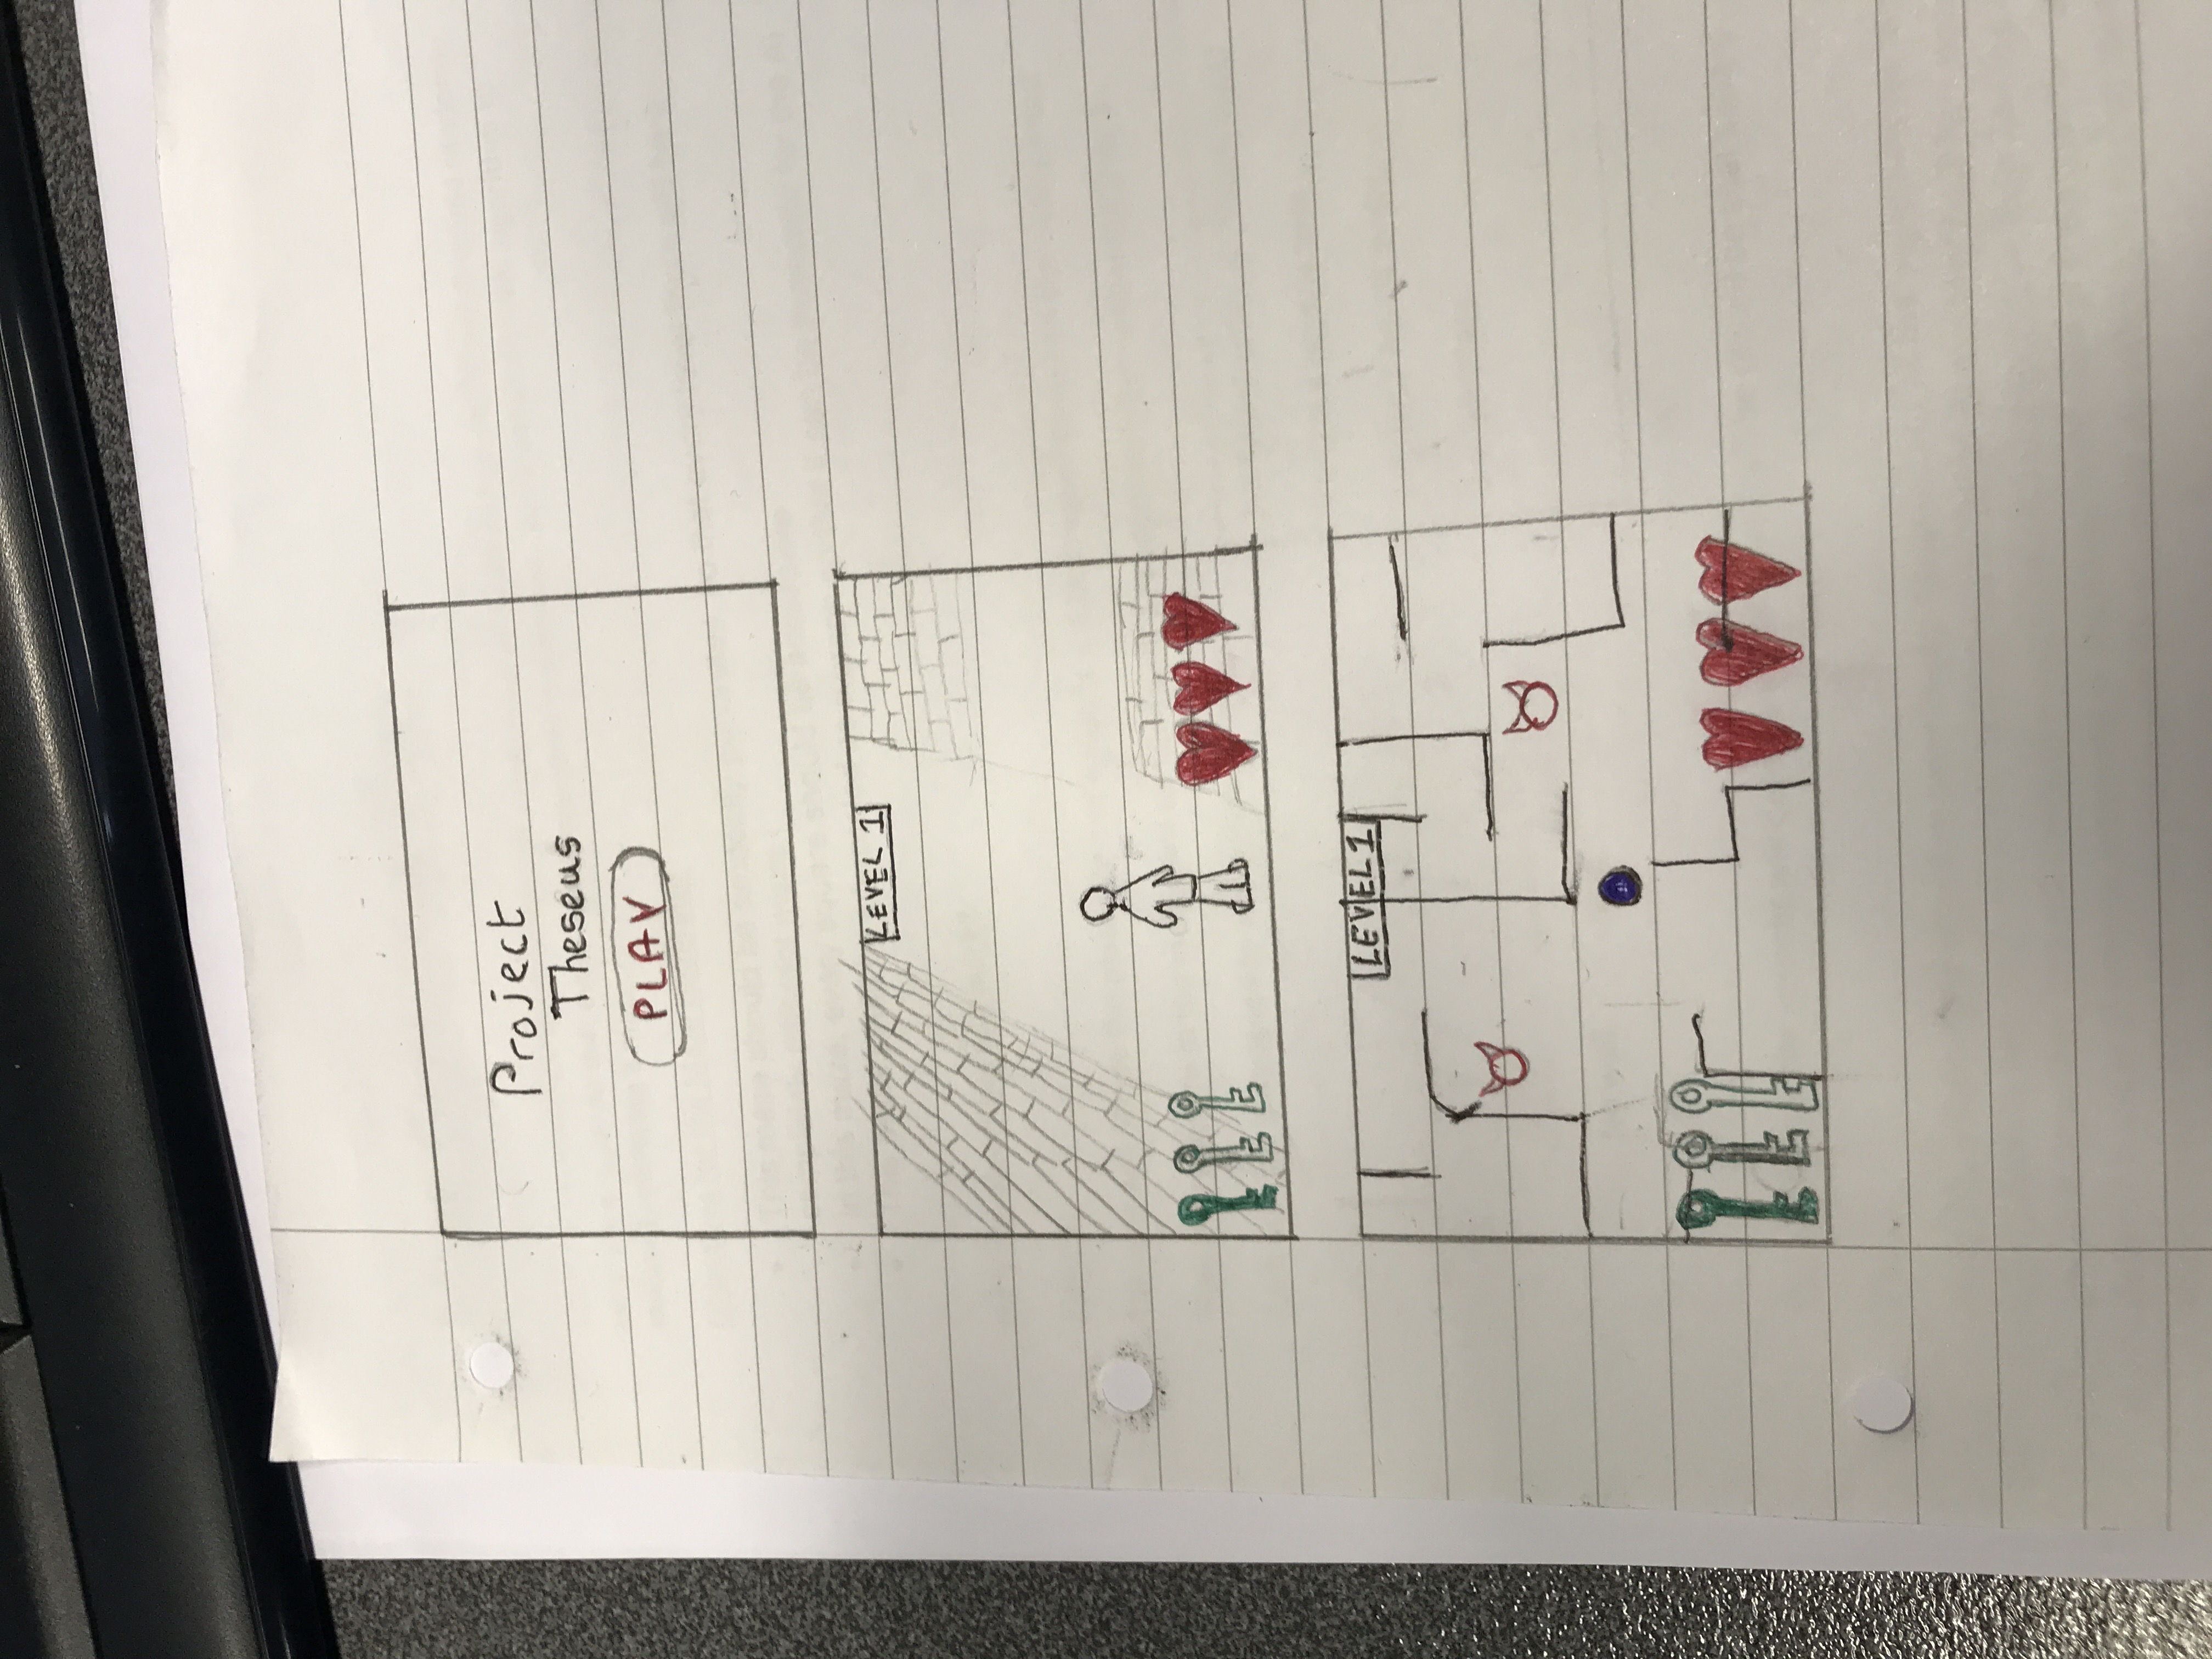 Project
Theseus
PLAY
LEVEL 1
LEVEL 1